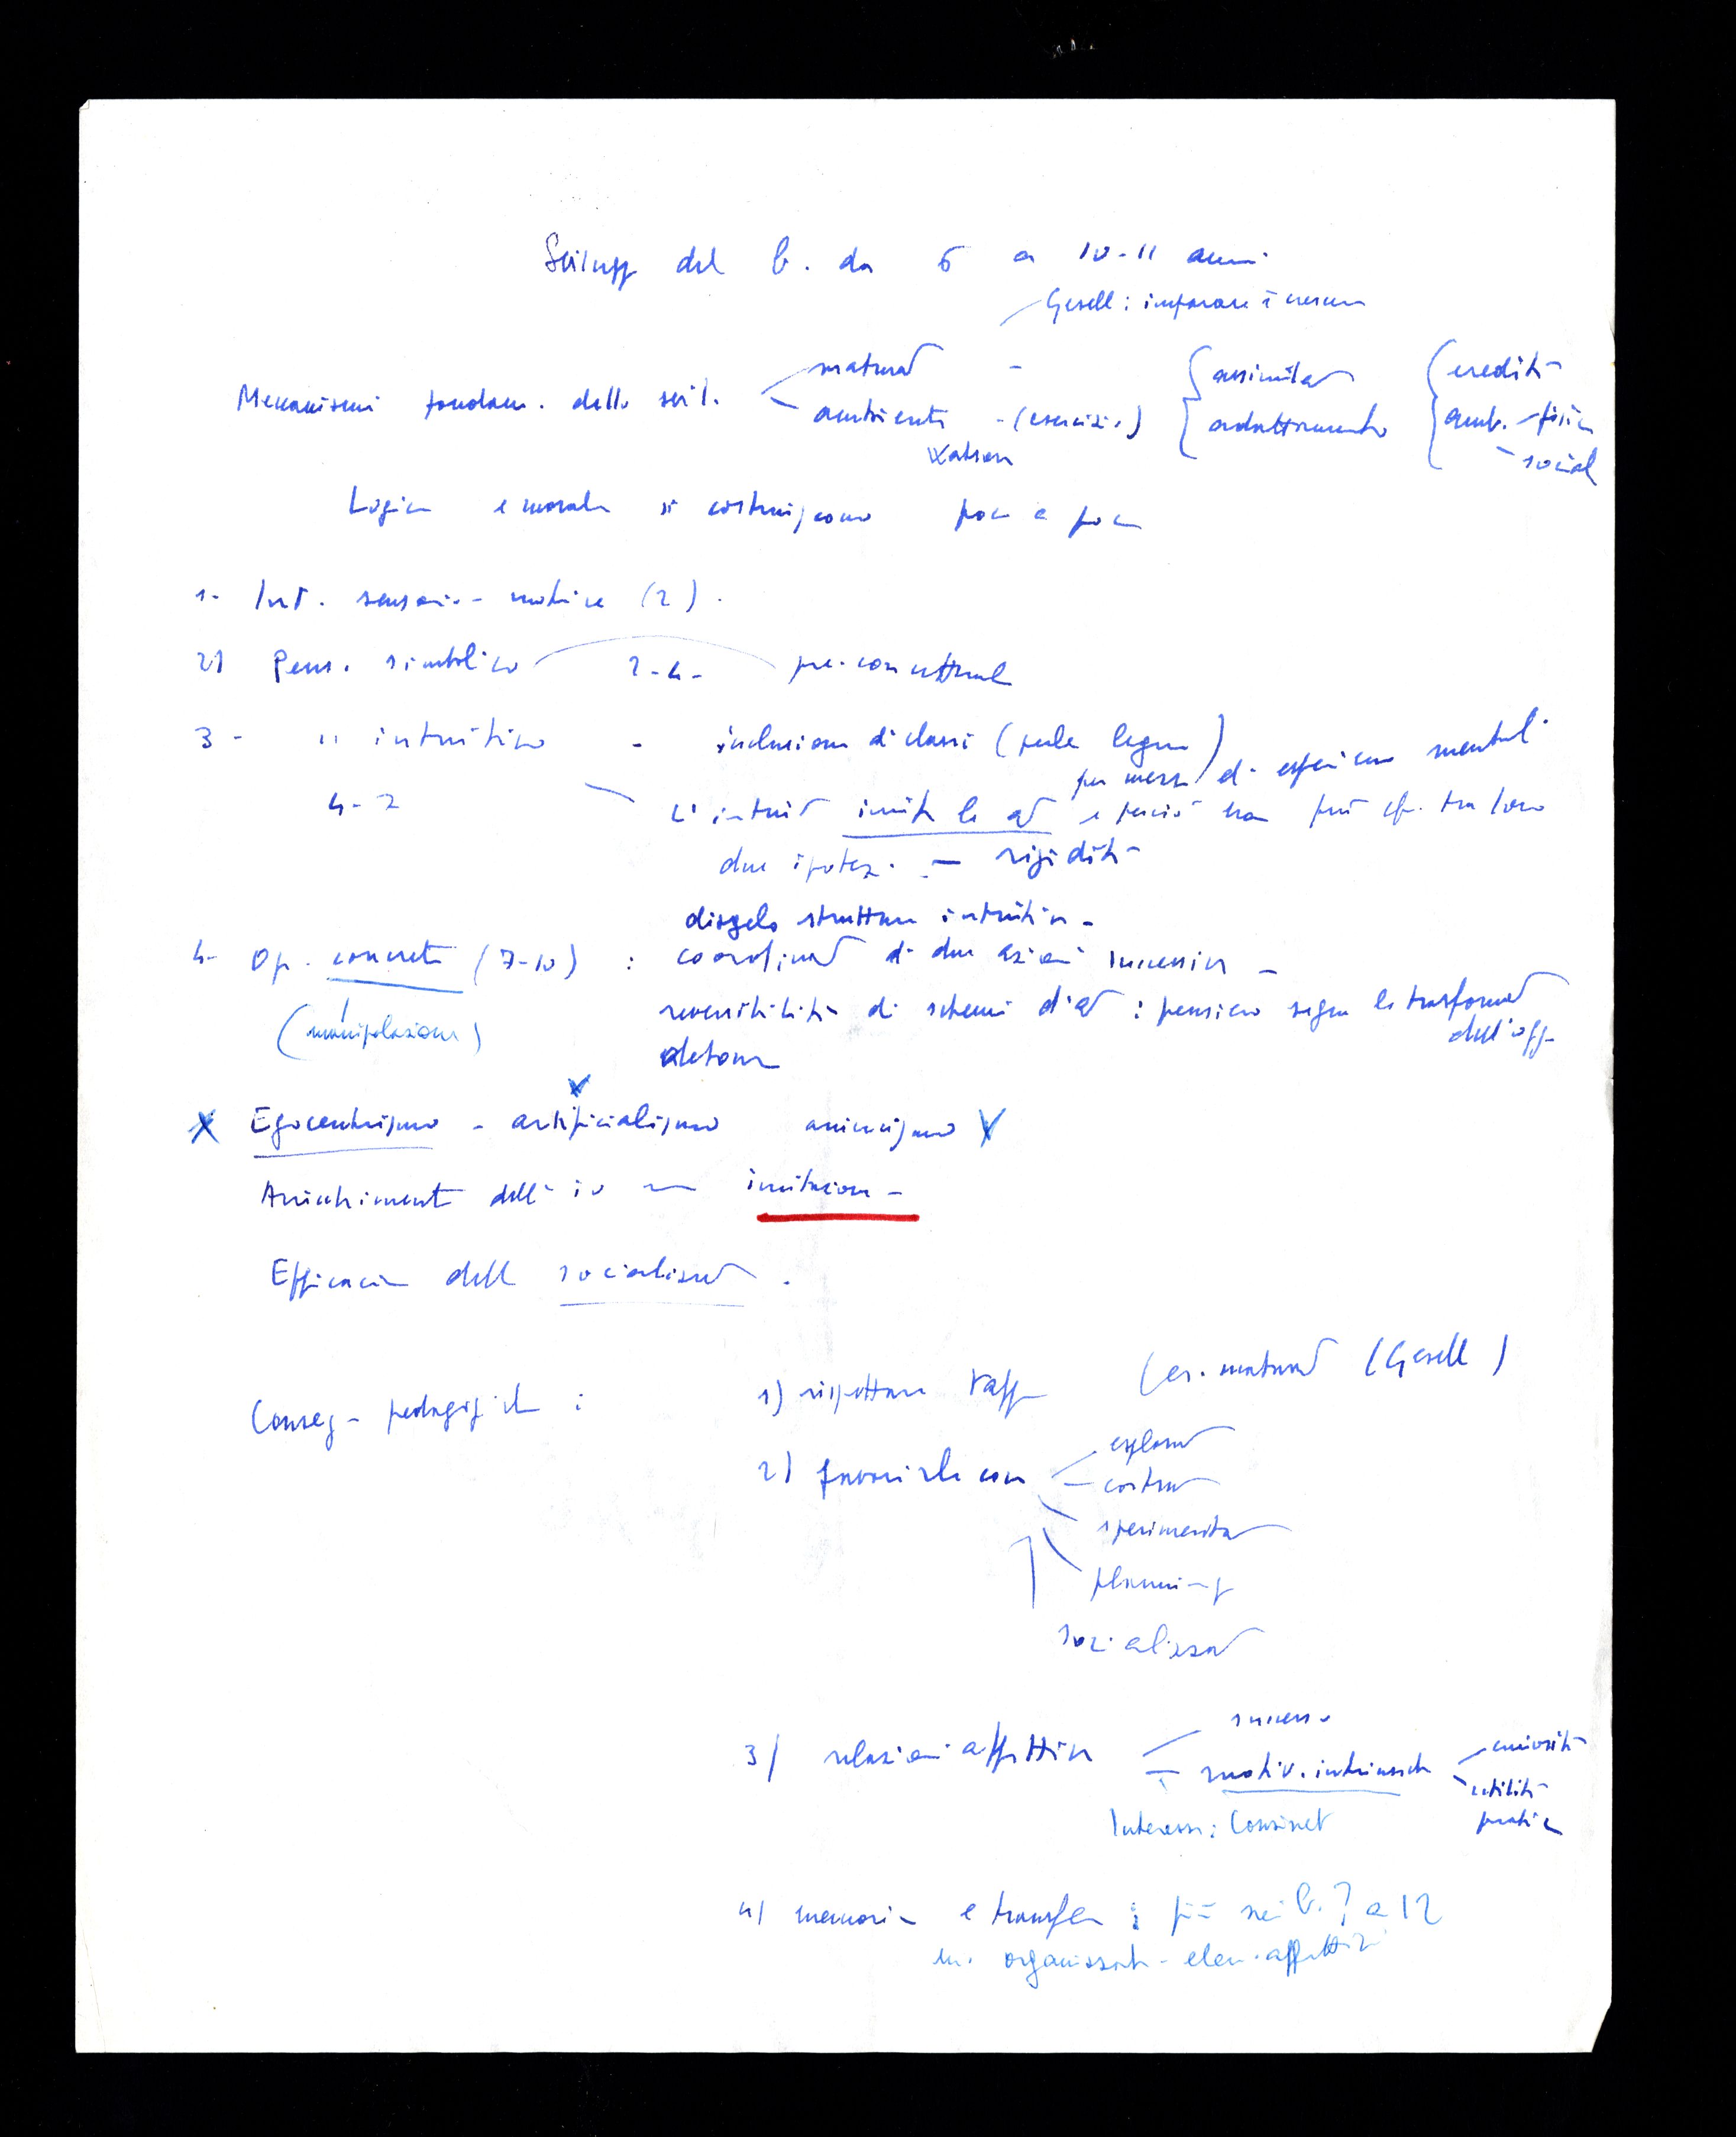 Svilupp del b. da 6 a 10-11 anni
Gesell: imparare è crescere
Meccanismi fondam. dello svil. maturaz - assimilaz eredità
ambiente - (esercizio) adattamento amb. fisic
Watson social
Logica e morale si costruiscono poco a poco
1- Int. senso-motrice (2).
2) Pens. simbolico 2-4- pre-concettuale
3- " intuitivo - inclusione di classi (perle legno)
per mezzo di esperienze mentali
4-7 L'intuiz imita le az e perciò non può cfr. tra loro
due ipotesi - rigidità
disgelo strutture intuitive -
4- Op. concrete (7-10) : coordinaz di due azioni successive -
(manipolazione) reversibilità di schemi d'az : pensiero segue le trasformaz
dell'ogg.
detour
Egocentrismo - artificialismo animismo
Arricchimento dell'io imitazione -
Efficacia dell socializzaz.
Conseg- pedagogiche : 1) rispettare (es. maturaz (Gesell)
2) favorirle con esploraz
costruz
sperimentaz
planning
socializzaz
3) relazioni affettive successo
motiv. intrinseche curiosità
utilità
pratica
Interessi: Cousinet
4) memoria e transfer : più nei b. 7 a 12
m. organizzata - elem. affettivi